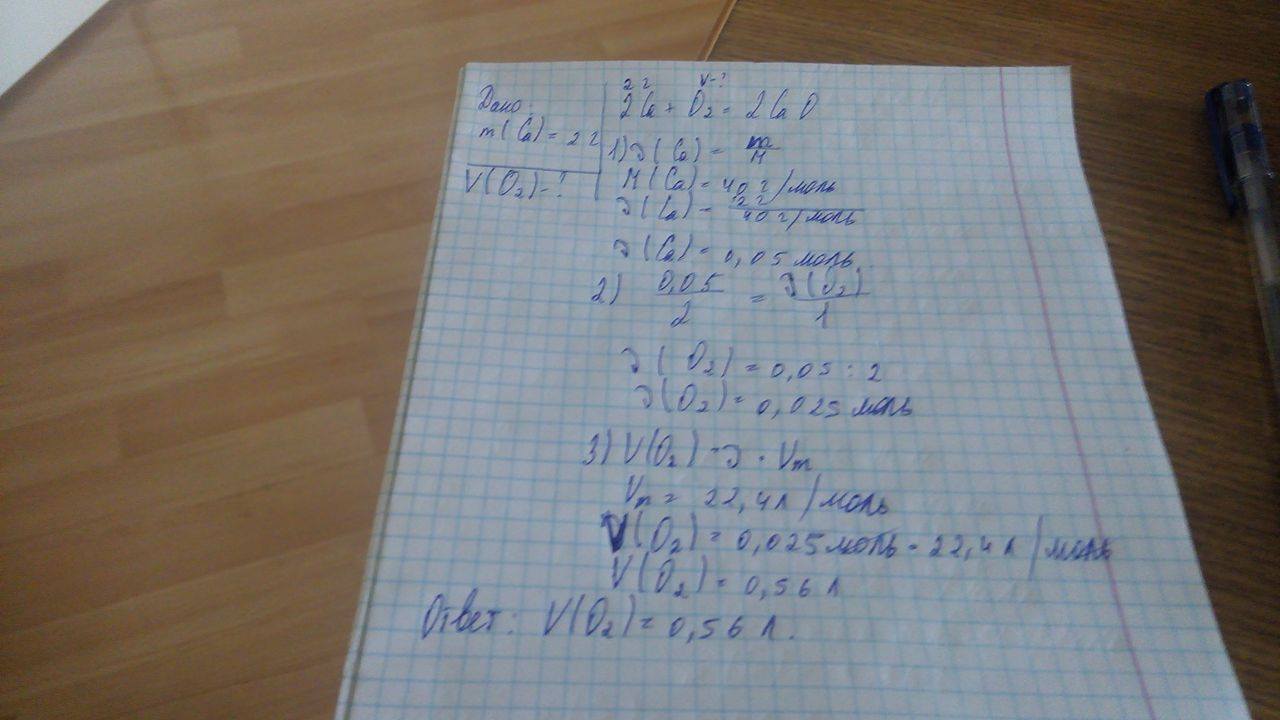 Дано:
m(Ca) = 2 г
V(O₂) - ?
2 г V-?
2Ca + O₂ = 2CaO
1) ν(Ca) = m/M
M(Ca) = 40 г/моль
ν(Ca) = 2 г / 40 г/моль
ν(Ca) = 0,05 моль
2) 0,05/2 = ν(O₂)/1
ν(O₂) = 0,05 : 2
ν(O₂) = 0,025 моль
3) V(O₂) = ν · Vm
Vm = 22,4 л/моль
V(O₂) = 0,025 моль · 22,4 л/моль
V(O₂) = 0,56 л
Ответ: V(O₂) = 0,56 л.